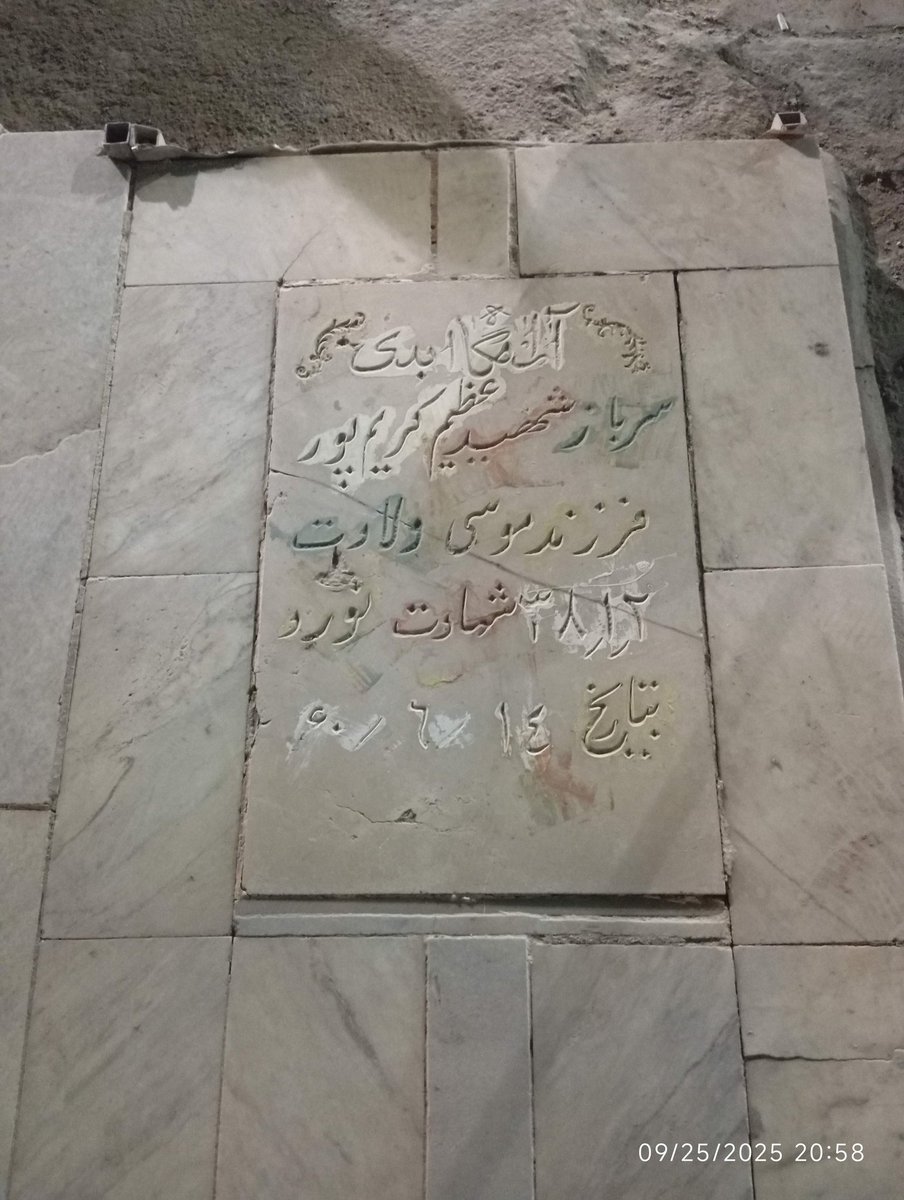 آرامگاه ابدی
سرباز شهید عظیم کریم پور
فرزند موسی ولادت
۳۸/۲ شهادت نورد
بتاریخ ۱٤ / ٦ / ۶۰
09/25/2025 20:58